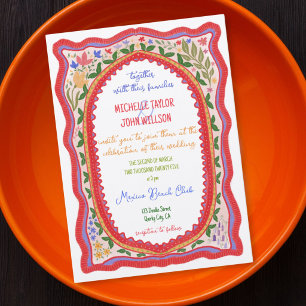 together
with their families
MICHELLE TAYLOR
&
JOHN WILLSON
invite you to join them at the
celebration of their wedding
THE SECOND OF MARCH
TWO THOUSAND TWENTY FIVE
Mexico Beach Club
123 Onville Street
Querky City, CA
reception to follow